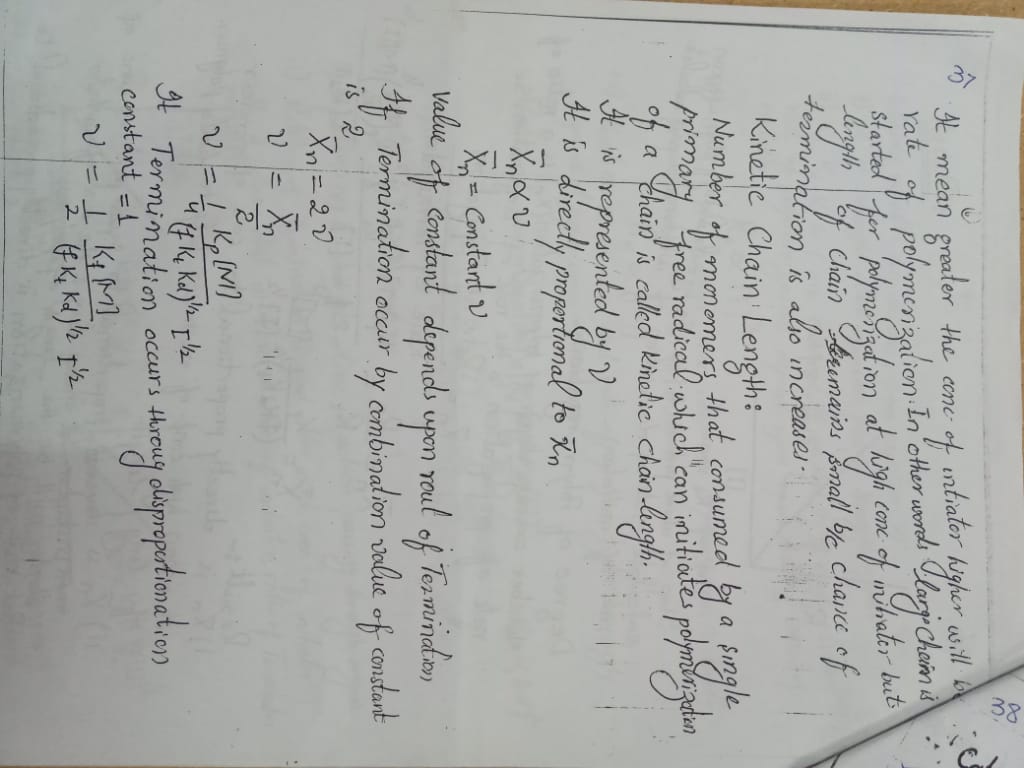 It mean greater the conc of intiator higher will be
rate of polymerization. In other words large chain is
started for polymerization at high conc of initiator but
length of chain remeins small b/c chance of
termination is also increases.
Kinetic Chain Length:
Number of monomers that consumed by a single
primary free radical which can initiates polymerization
of a chain is called kinetic chain length.
It is represented by ν
It is directly proportional to x̄n
X̄n ∝ ν
X̄n = constant ν
Value of constant depends upon rout of Termination
If Termination occur by combination value of constant
is 2
X̄n = 2ν
ν = X̄n / 2
ν = 1/4 Kp [M] / (f Kt Kd)^1/2 I^1/2
If Termination occurs throug disproportionation
constant = 1
ν = 1/2 [M] / (f Kt Kd)^1/2 I^1/2